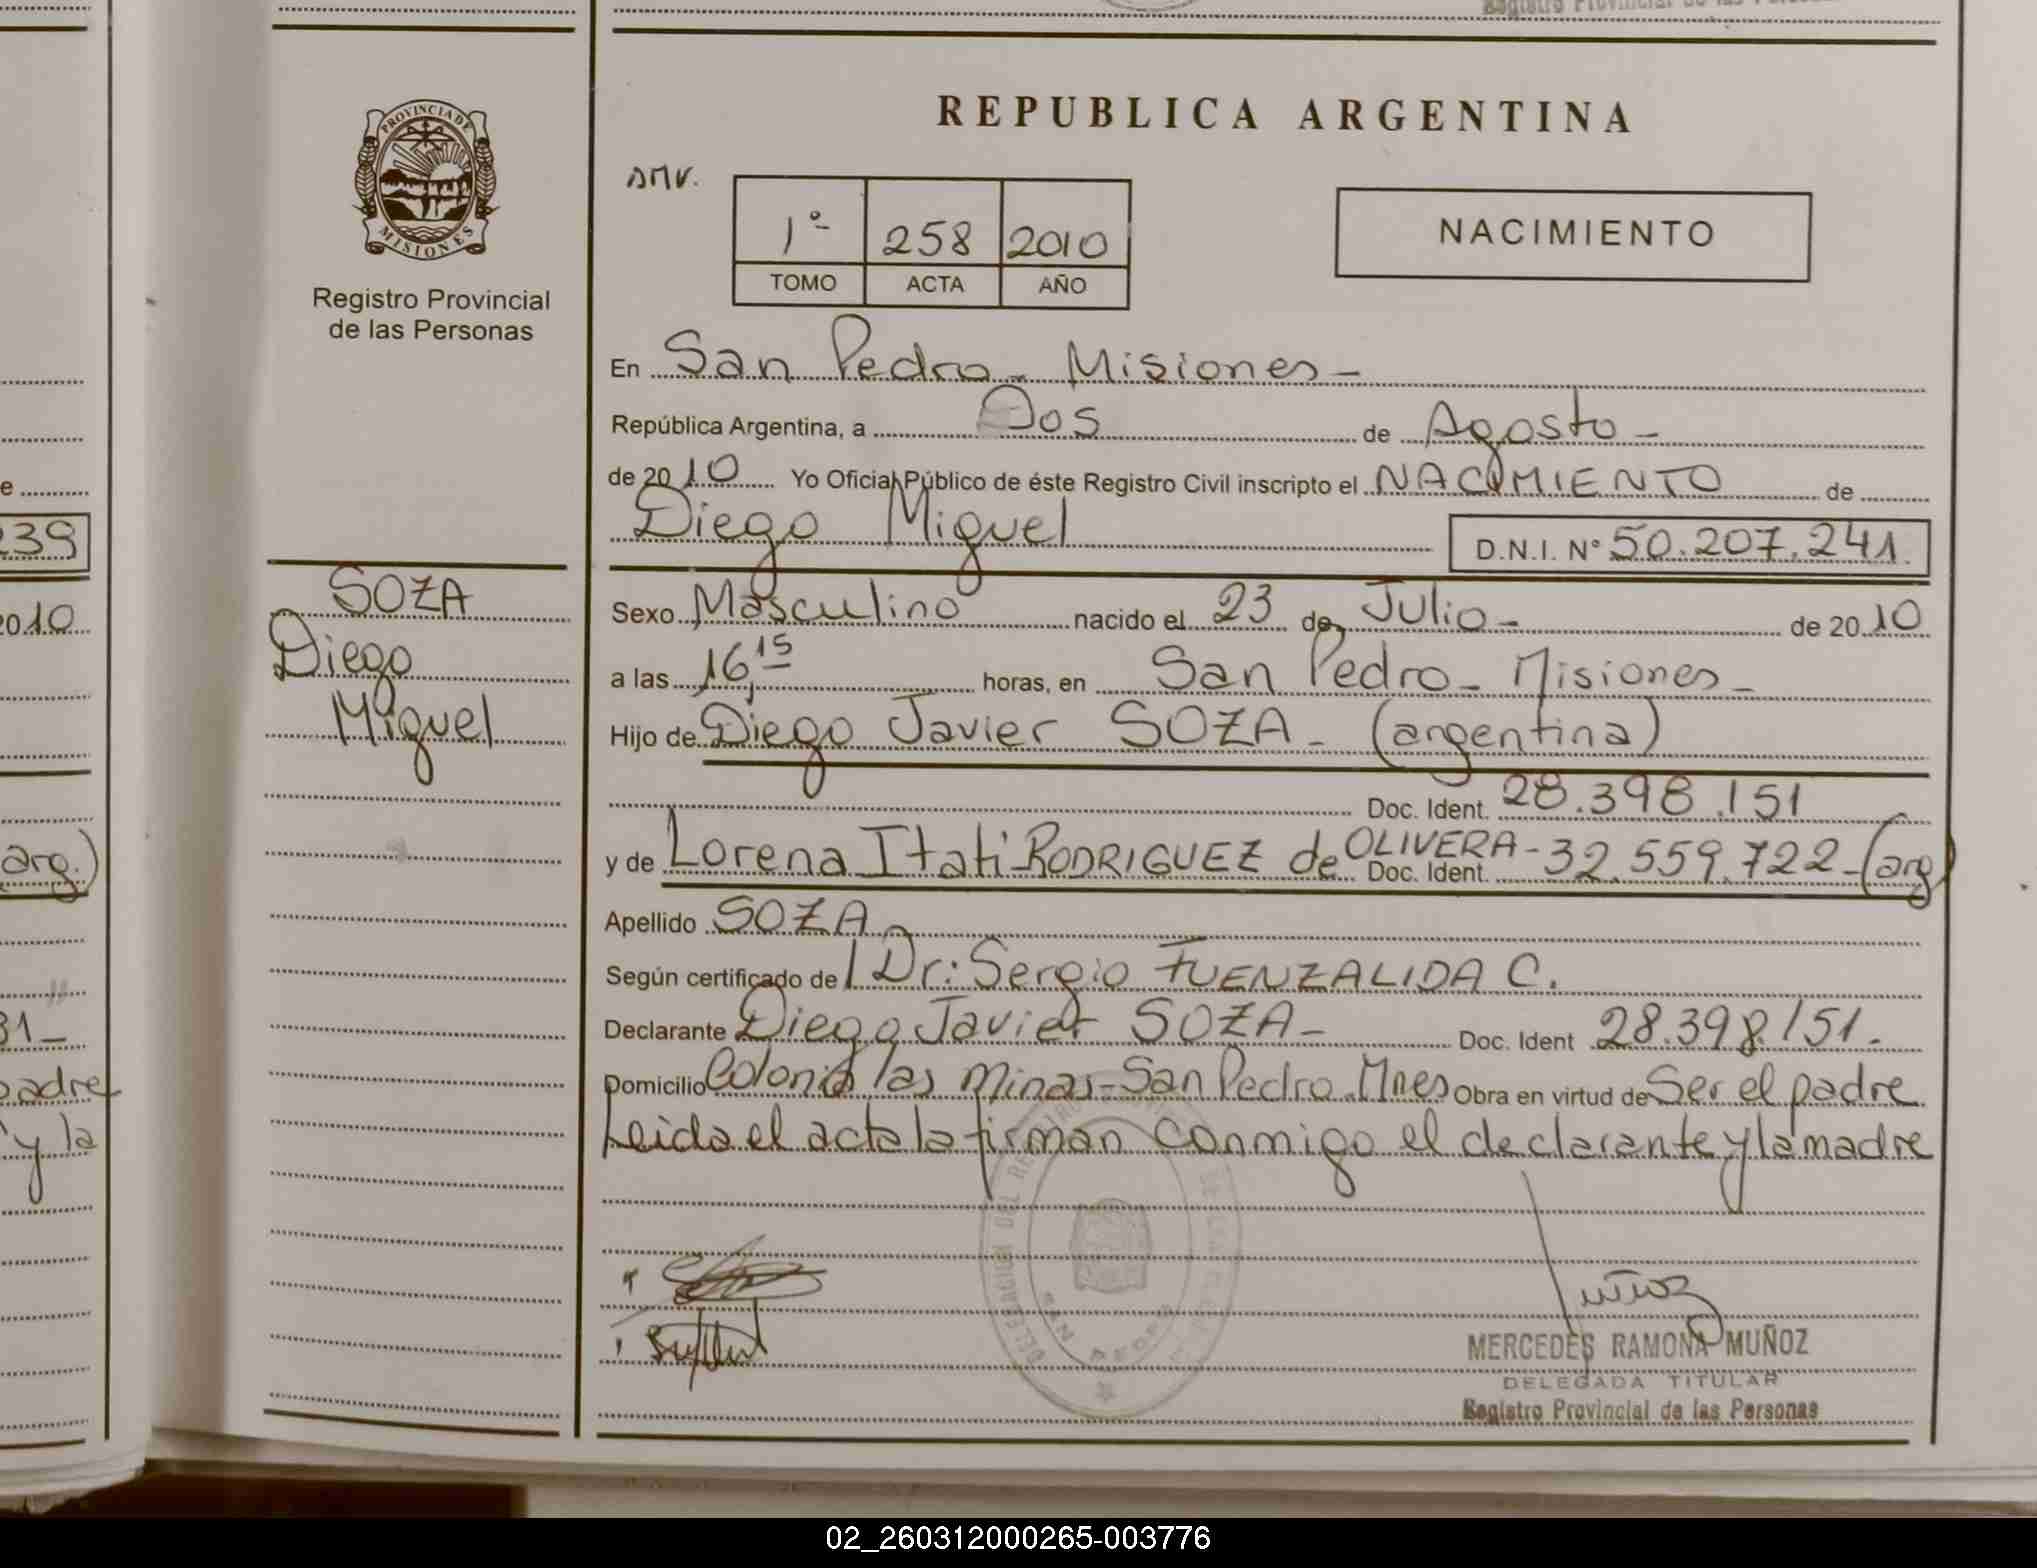 REPUBLICA ARGENTINA
PROVINCIA DE
MISIONES
Registro Provincial
de las Personas
DMV.
1º 258 2010
TOMO ACTA AÑO
NACIMIENTO
En San Pedro - Misiones -
República Argentina, a Dos de Agosto -
de 2010 Yo Oficial Público de éste Registro Civil inscripto el NACIMIENTO de
Diego Miguel D.N.I. Nº 50.207.241.
SOZA
Diego
Miguel
Sexo Masculino nacido el 23 de Julio - de 2010
a las 16,15 horas, en San Pedro - Misiones -
Hijo de Diego Javier SOZA - (argentina)
Doc. Ident. 28.398.151
y de Lorena Itatí RODRIGUEZ de OLIVERA - Doc. Ident. 32.559.722 - (arg)
Apellido SOZA
Según certificado de Dr: Sergio FUENZALIDA C.
Declarante Diego Javier SOZA - Doc. Ident 28.398.151.
Domicilio Colonia las Minas - San Pedro. Mnes Obra en virtud de Ser el padre
Leida el acta la firman conmigo el declarante y la madre
SAN PEDRO
MERCEDES RAMONA MUÑOZ
DELEGADA TITULAR
Registro Provincial de las Personas
239
2010
arg.)
31 -
padre
y la
02_260312000265-003776